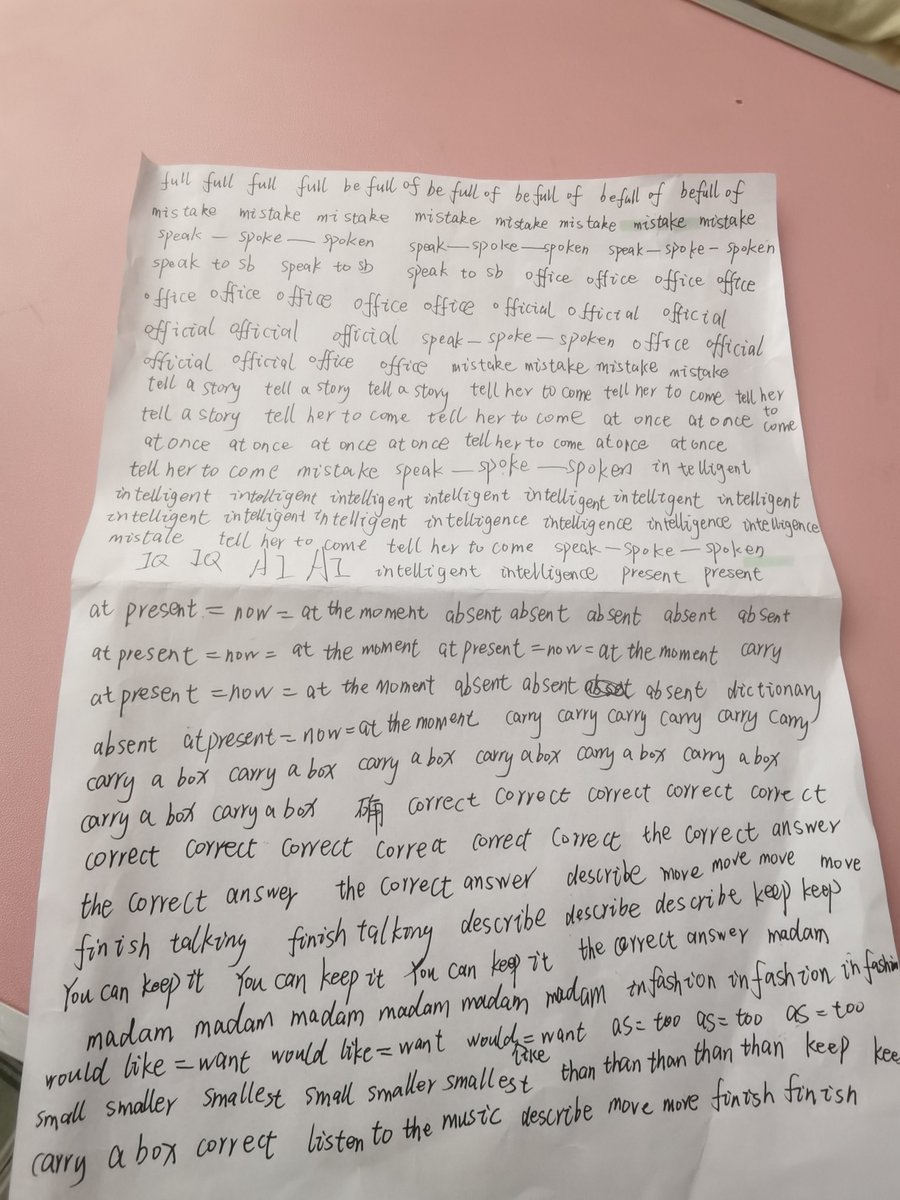 full full full full be full of be full of be full of be full of be full of
mistake mistake mistake mistake mistake mistake mistake mistake
speak — spoke — spoken speak — spoke — spoken speak — spoke – spoken
speak to sb speak to sb speak to sb office office office office
office office office office office official official official
official official official speak — spoke — spoken office official
official official office office mistake mistake mistake mistake
tell a story tell a story tell a story tell her to come tell her to come tell her to come
tell a story tell her to come tell her to come at once at once
at once at once at once at once tell her to come at once at once
tell her to come mistake speak — spoke — spoken intelligent
intelligent intelligent intelligent intelligent intelligent intelligent intelligent
intelligent intelligent intelligent intelligence intelligence intelligence intelligence
mistale tell her to come tell her to come speak — spoke — spoken
IQ IQ AI AI intelligent intelligence present present
at present = now = at the moment absent absent absent absent absent
at present = now = at the moment at present = now = at the moment carry
at present = now = at the moment absent absent absent dictionary
absent at present = now = at the moment carry carry carry carry carry carry
carry a box carry a box carry a box carry a box carry a box carry a box
carry a box carry a box 确 correct correct correct correct correct
correct correct correct correct correct correct the correct answer
the correct answer the correct answer describe move move move move
finish talking finish talking describe describe describe keep keep
You can keep it You can keep it You can keep it the correct answer madam
madam madam madam madam madam madam in fashion in fashion in fashion
would like = want would like = want would like = want as = too as = too as = too
small smaller smallest small smaller smallest than than than than than keep kee
carry a box correct listen to the music describe move move finish finish